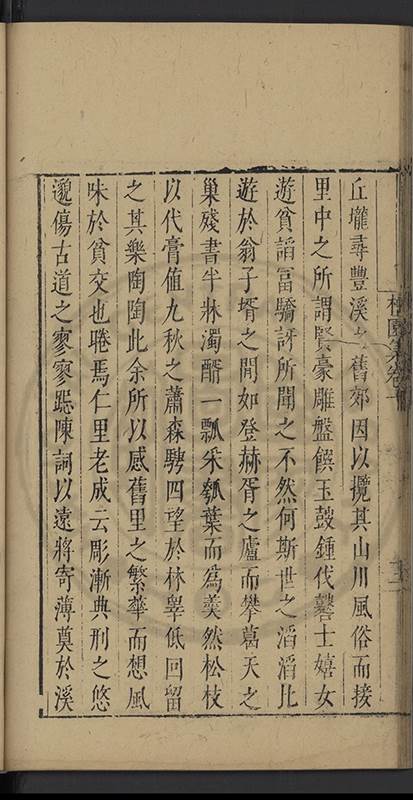 丘壠尋豐溪之舊郊因以攬其山川風俗而接
里中之所謂賢豪雕盤饌玉鼓鍾伐鼛士嬉女
遊貧謟富驕訝所聞之不然何斯世之滔滔比
遊於翁子壻之閒如登赫胥之廬而攀葛天之
巢殘書半牀濁醑一瓢采瓠葉而為羹然松枝
以代膏值九秋之蕭森騁四望於林皋低回留
之其樂陶陶此余所以感舊里之繁華而想風
味於貧交也睠焉仁里老成云彫漸典刑之悠
邈傷古道之寥寥跽陳詞以遠將寄薄奠於溪
園集卷